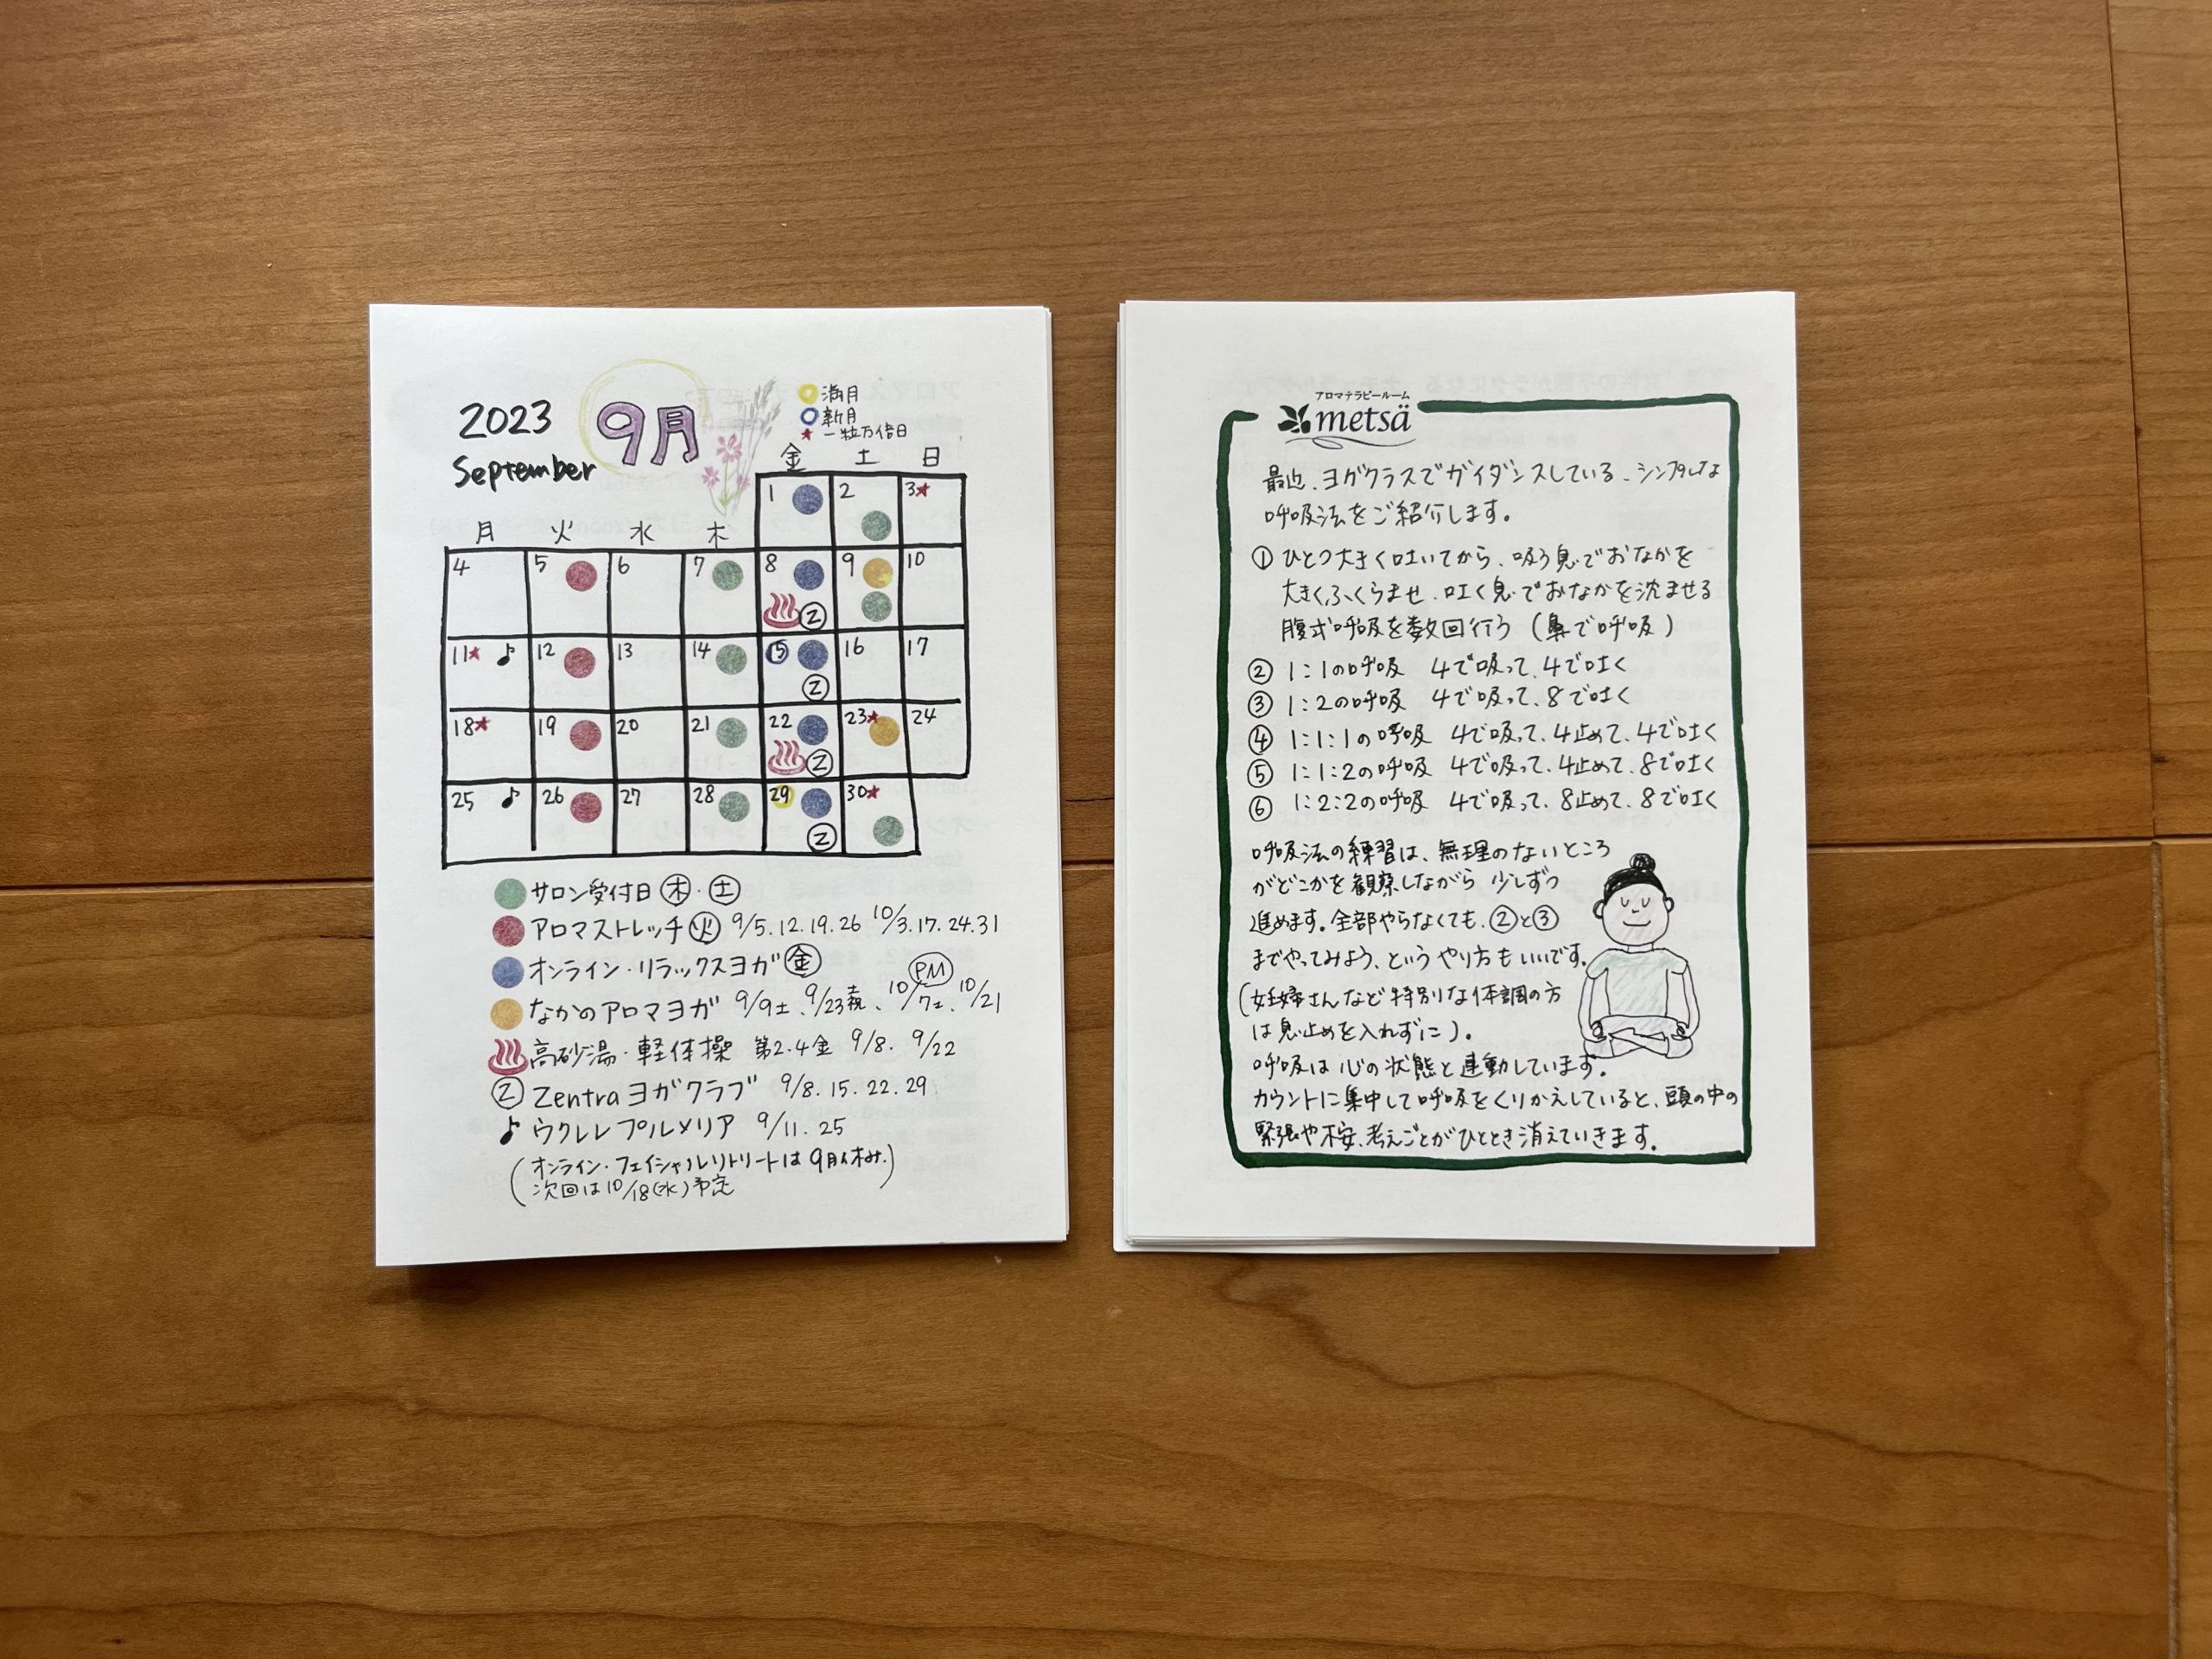 2023
September
9月
満月
新月
一粒万倍日
金 土 日
1 2 3
月 火 水 木
4 5 6 7 8 9 10
Z
11 12 13 14 15 16 17
Z
18 19 20 21 22 23 24
Z
25 26 27 28 29 30
Z
サロン受付日 木・土
アロマストレッチ 火 9/5.12.19.26 10/3.17.24.31
オンライン・リラックスヨガ 金
なかのアロマヨガ 9/9土、9/23土祝、10/7土、10/21
PM
高砂湯・軽体操 第2.4金 9/8. 9/22
Z Zentraヨガクラブ 9/8.15.22.29
ウクレレ プルメリア 9/11.25
(オンライン・フェイシャルリトリートは9月休み.
次回は10/18(水)予定)
アロマテラピールーム
metsä
最近、ヨガクラスでガイダンスしている、シンプルな
呼吸法をご紹介します。
① ひとつ大きく吐いてから、吸う息でおなかを
大きくふくらませ、吐く息でおなかを沈ませる
腹式呼吸を数回行う(鼻で呼吸)
② 1:1の呼吸 4で吸って、4で吐く
③ 1:2の呼吸 4で吸って、8で吐く
④ 1:1:1の呼吸 4で吸って、4止めて、4で吐く
⑤ 1:1:2の呼吸 4で吸って、4止めて、8で吐く
⑥ 1:2:2の呼吸 4で吸って、8止めて、8で吐く
呼吸法の練習は、無理のないところ
がどこかを観察しながら 少しずつ
進めます。全部やらなくても、②と③
までやってみよう、というやり方もいいです。
(妊婦さんなど特別な体調の方
は息止めを入れずに)。
呼吸は心の状態と連動しています。
カウントに集中して呼吸をくりかえしていると、頭の中の
緊張や不安、考えごとがひととき消えていきます。